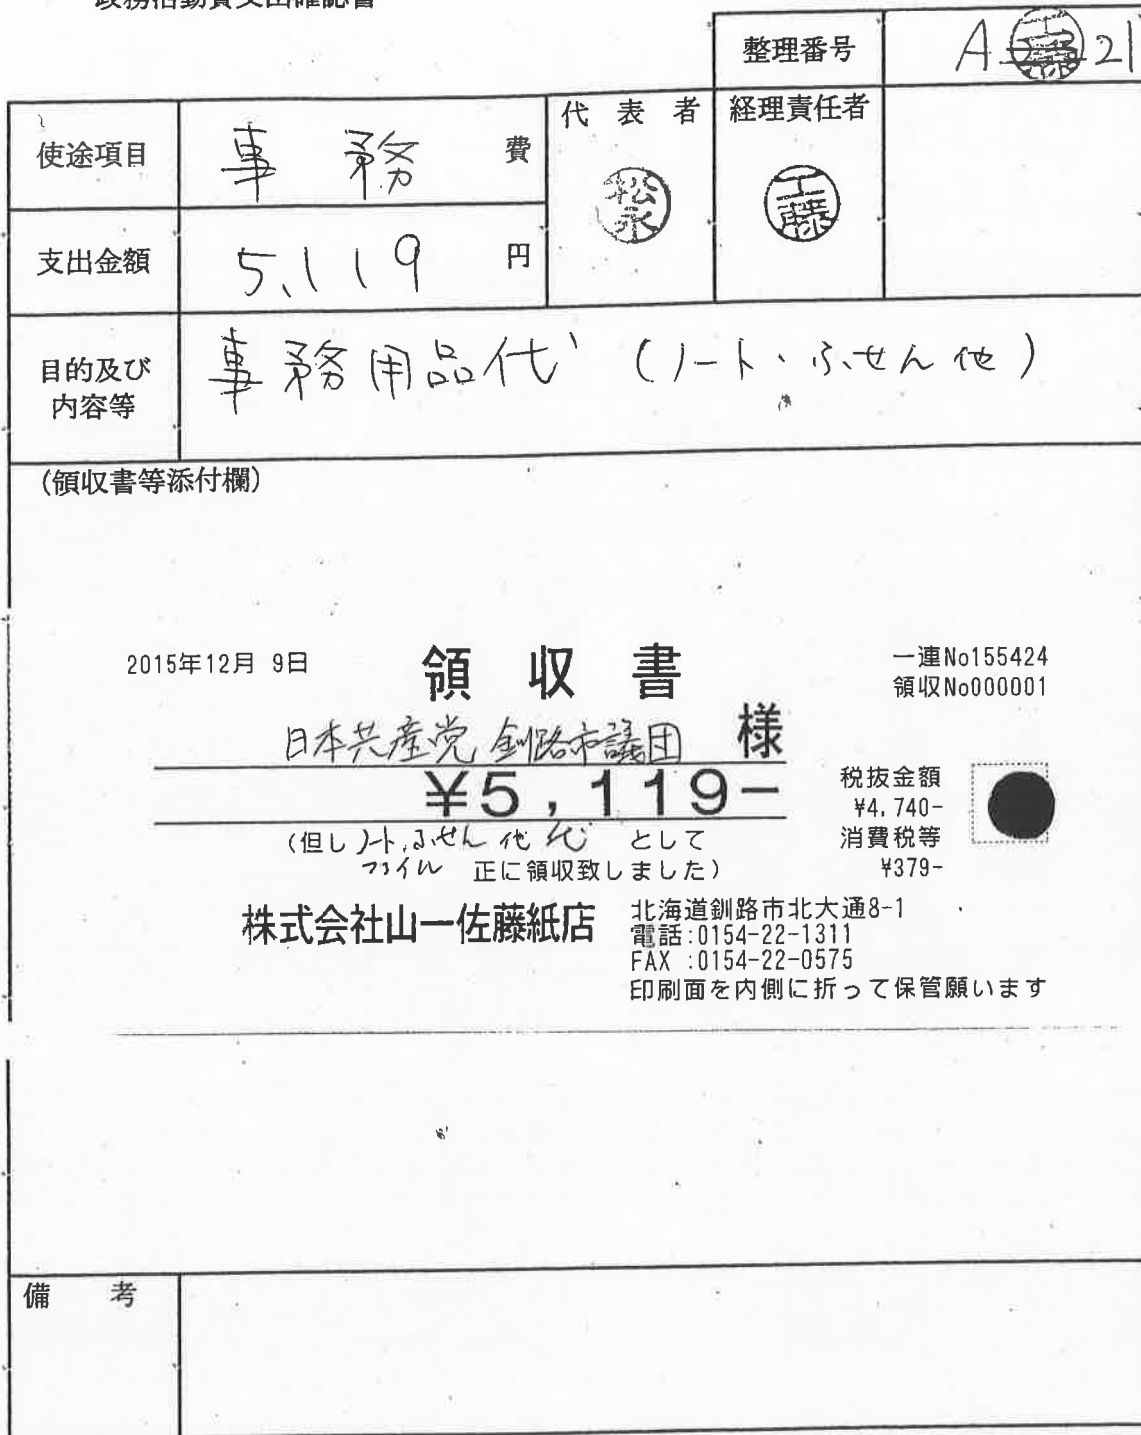 政務活動費支出確認書
整理番号 A 21
使途項目 事務 費
代表者 経理責任者
松永 工藤
支出金額 5,119 円
目的及び内容等 事務用品代 (ノート、ふせん他)
(領収書等添付欄)
2015年12月 9日 領収書 一連No155424
領収No000001
日本共産党 釧路市議団 様
¥5,119-
税抜金額
¥4,740-
消費税等
¥379-
(但し ノート,ふせん 他 代 として
ファイル 正に領収致しました)
株式会社山一佐藤紙店
北海道釧路市北大通8-1
電話:0154-22-1311
FAX :0154-22-0575
印刷面を内側に折って保管願います
備考